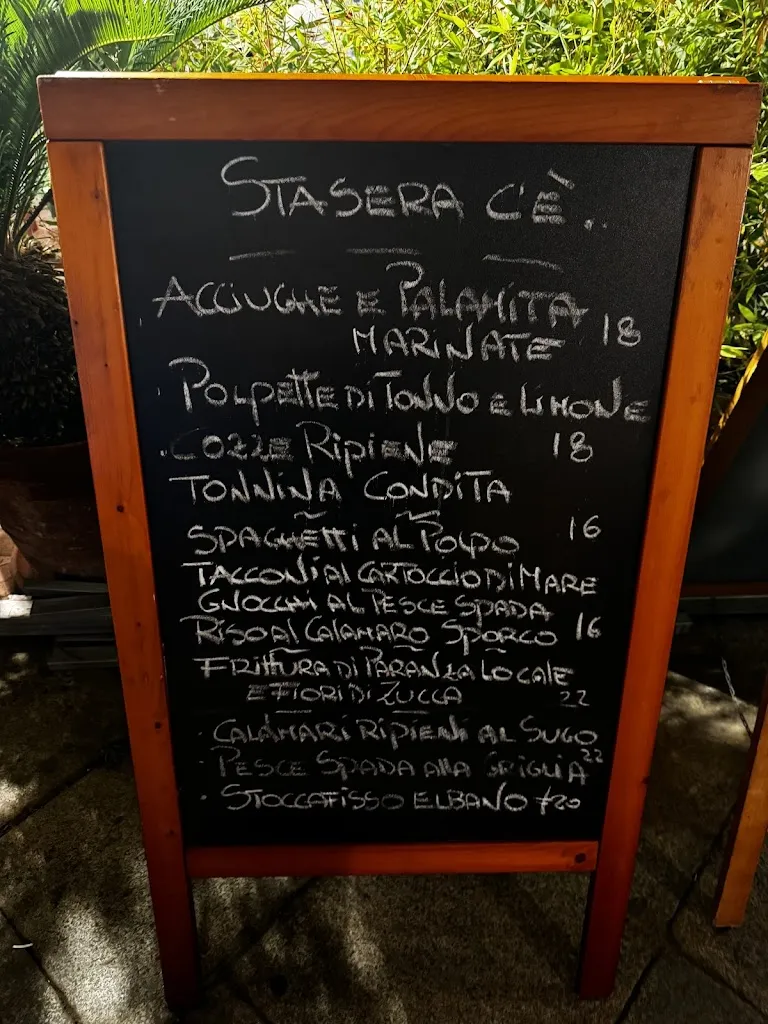 STASERA C'È..
ACCIUGHE E PALAMITA
MARINATE 18
POLPETTE DI TONNO E LIMONE
COZZE RIPIENE 18
TONNINA CONDITA
SPAGHETTI AL POLPO 16
TACCONI AL CARTOCCIO DI MARE
GNOCCHI AL PESCE SPADA
RISO AL CALAMARO SPORCO 16
FRITTURA DI PARANZA LOCALE
E FIORI DI ZUCCA 22
· CALAMARI RIPIENI AL SUGO
· PESCE SPADA ALLA GRIGLIA 22
· STOCCAFISSO ELBANO €20